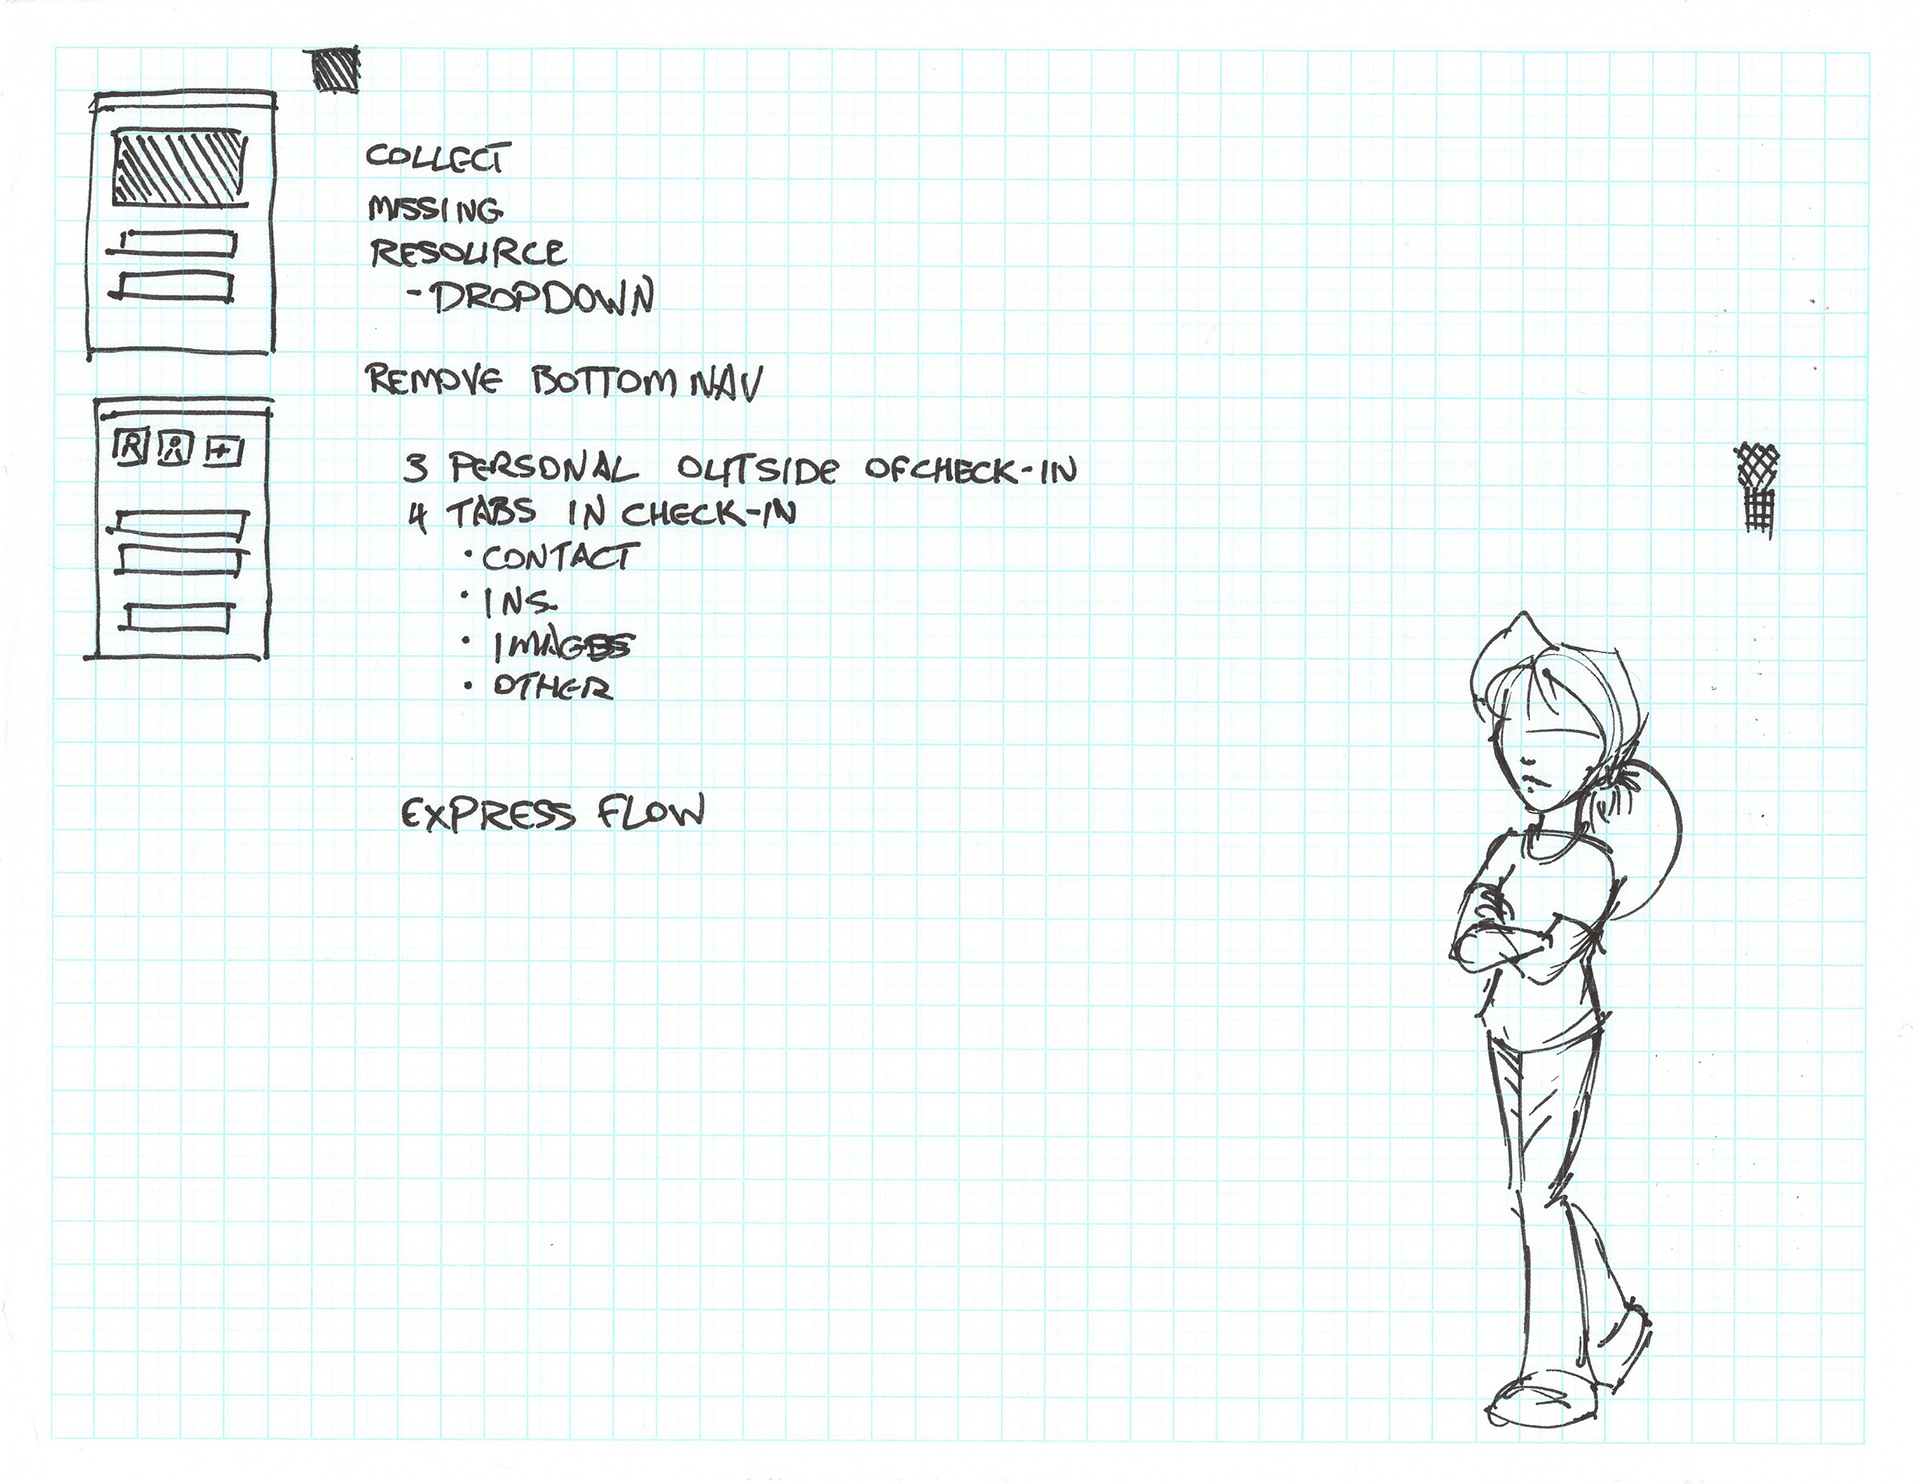 COLLECT
MISSING
RESOURCE
- DROPDOWN
REMOVE BOTTOM NAV
R +
3 PERSONAL OUTSIDE OF CHECK-IN
4 TABS IN CHECK-IN
• CONTACT
• INS.
• IMAGES
• OTHER
EXPRESS FLOW